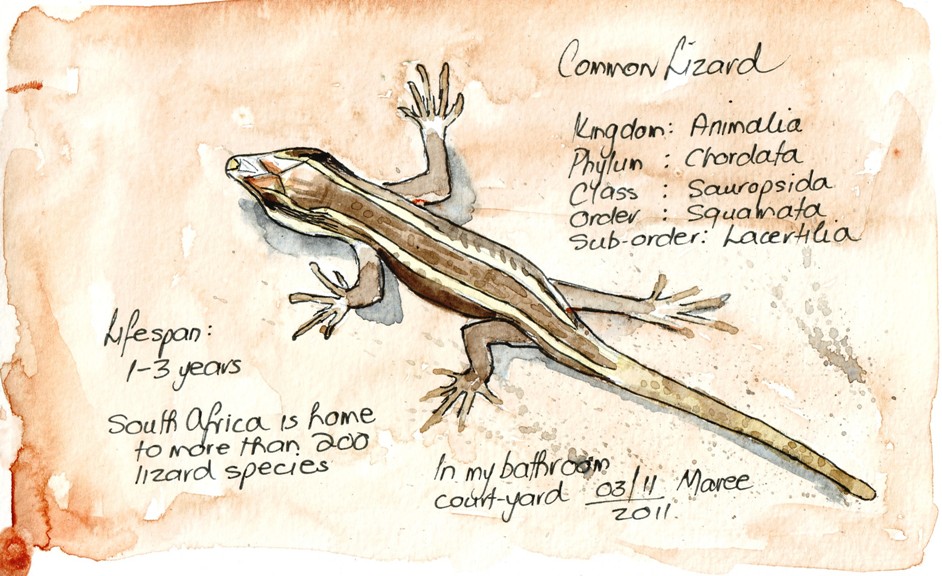 Common Lizard
Kingdom: Animalia
Phylum : Chordata
Class : Sauropsida
Order : Squamata
Sub-order: Lacertilia
Lifespan:
1-3 years
South Africa is home
to more than 200
lizard species
In my bathroom
court-yard 03/11 Maree
2011.